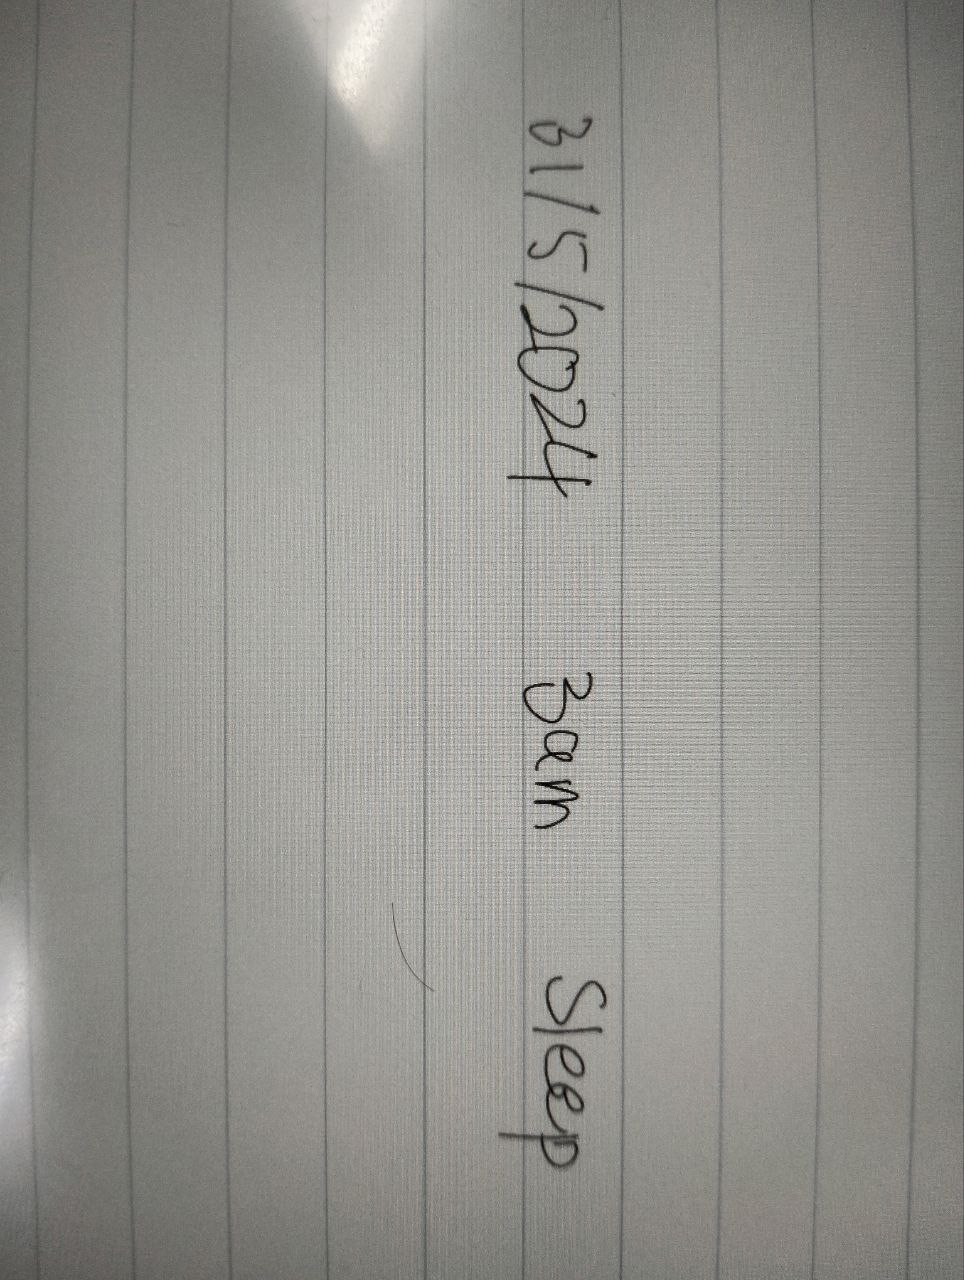 31/5/2024 3am Sleep